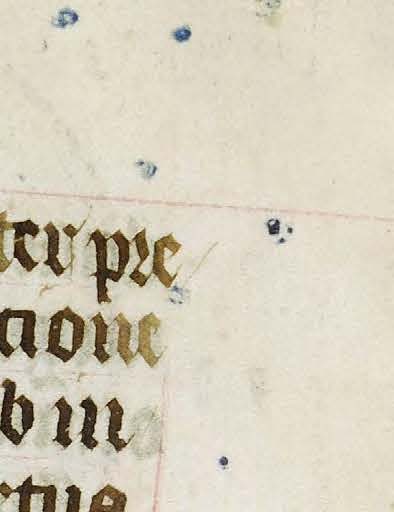 ter pre
cione
b in
rtus